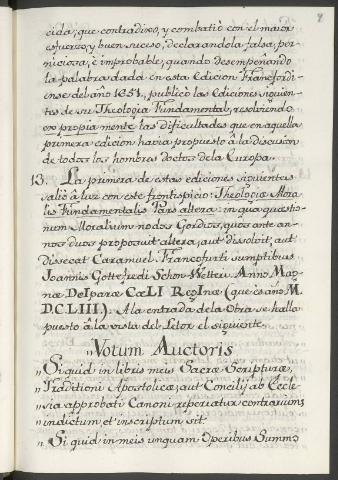 8
cida, que contradixo, y combatiò con el maior
esfuerzo, y buen suceso, declarandola falsa, per-
niciosa, è improbable, quando desempeñando
la palabra dada en esta edicion Francfordi-
ense del año 1651., publicò las Ediciones siguien-
tes de su Theologia Fundamental, resolviendo
ex propia mente las dificultades que en aquella
primera edicion havia propuesto à la discusion
de todos los hombres doctos de la Europa.
13. La primera de estas ediciones siguientes
saliò à luz con este frontispicio: Theologiæ Mora-
lis Fundamentalis Pars altera: in qua quæstio-
num Moralium nodos Gordios, quos ante an-
nos duos proposuit altera, aut dissolvit, aut
dissecat Caramuel. Francofurti sumptibus
Joannis Gottefredi Schon-Wetteri Anno Mag-
næ DeIparæ CœLI RegInæ (que es año M.
D.C.LIII.). A la entrada de la Obra se halla
puesto à la vista del Letor el siguiente.
„ Votum Auctoris
„ Si quid in libris meis Sacræ Scripturæ,
„ Traditioni Apostolicæ, aut Concilij ab Eccle-
„ sia approbati Canoni reperiatur contrarium,
„ indictum et inscriptum sit.
„ Si quid in meis unquam Operibus Summo